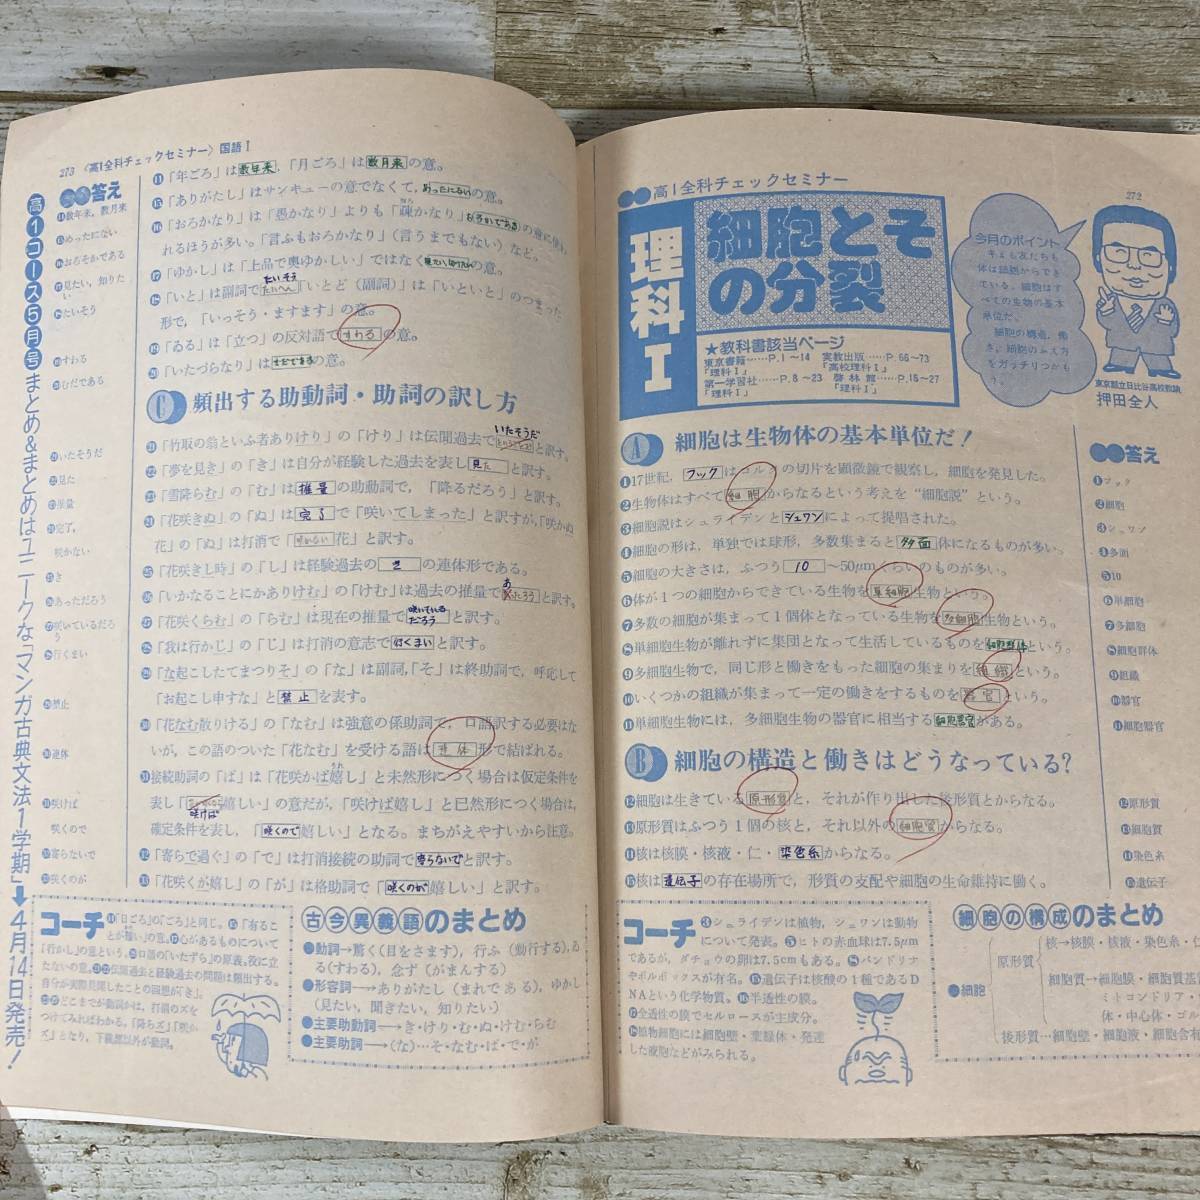 273 〈高1全科チェックセミナー〉国語Ⅰ
高1コース5月号まとめ&まとめはユニークな「マンガ古典文法1学期」➡4月14日発売!
答え
⑭数年来，数月来
⑮めったにない
⑯おろそかである
⑰見たい，知りたい
⑱たいそう
⑲すわる
⑳むだである
㉑いたそうだ
㉒見た
㉓推量
㉔完了，
咲かない
㉕き
㉖あっただろう
㉗咲いているだろう
㉘行くまい
㉙禁止
㉚連体
㉛咲けば
咲くので
㉜寄らないで
㉝咲くのが
⑭「年ごろ」は数年来，「月ごろ」は数月来の意。
⑮「ありがたし」はサンキューの意でなくて，めったにないの意。
⑯「おろかなり」は「愚かなり」よりも「疎かなり」おろそかであるの意に使わ
れるほうが多い。「言ふもおろかなり」(言うまでもない)など。
⑰「ゆかし」は「上品で奥ゆかしい」ではなく見たい,知りたいの意。
⑱「いと」は副詞でたいそう「いとど（副詞）」は「いといと」のつまった
形で，「いっそう・ますます」の意。
⑲「ゐる」は「立つ」の反対語ですわるの意。
⑳「いたづらなり」はむだであるの意。
C 頻出する助動詞・助詞の訳し方
㉑「竹取の翁といふ者ありけり」の「けり」は伝聞過去でいたそうだと訳す。
㉒「夢を見き」の「き」は自分が経験した過去を表し見たと訳す。
㉓「雪降らむ」の「む」は推量の助動詞で，「降るだろう」と訳す。
㉔「花咲きぬ」の「ぬ」は完了で「咲いてしまった」と訳すが，「咲かぬ
花」の「ぬ」は打消で「咲かない花」と訳す。
㉕「花咲きし時」の「し」は経験過去のきの連体形である。
㉖「いかなることにかありけむ」の「けむ」は過去の推量であったろうと訳す。
㉗「花咲くらむ」の「らむ」は現在の推量で咲いているだろうと訳す。
㉘「我は行かじ」の「じ」は打消の意志で行くまいと訳す。
㉙「な起こしたてまつりそ」の「な」は副詞，「そ」は終助詞で，呼応して
「お起こし申すな」と禁止を表す。
㉚「花なむ散りける」の「なむ」は強意の係助詞で，口語訳する必要はな
いが，この語のついた「花なむ」を受ける語は連体形で結ばれる。
㉛接続助詞の「ば」は「花咲かば嬉し」と未然形につく場合は仮定条件を
表し「咲けば嬉しい」の意だが，「咲けば嬉し」と已然形につく場合は，
確定条件を表し，「咲くので嬉しい」となる。まちがえやすいから注意。
㉜「寄らで過ぐ」の「で」は打消接続の助詞で寄らないでと訳す。
㉝「花咲くが嬉し」の「が」は格助詞で「咲くのが嬉しい」と訳す。
コーチ
⑭「日ごろ」の「ごろ」と同じ。⑮「有るこ
とが難い」の意。⑰心があるものについて
「行かし」の意という。⑳口語の「いたずら」の原義。役に立
たないの意。㉑㉒伝聞過去と経験過去の問題は頻出する。
自分が実際見聞したことの回想が「き」。
古今異義語のまとめ
●動詞→驚く(目をさます)，行ふ(勤行する)，ゐ
る(すわる)，念ず(がまんする)
●形容詞→ありがたし(まれである)，ゆかし
(見たい，聞きたい，知りたい)
●主要助動詞→き・けり・む・ぬ・けむ・らむ
●主要助詞→(な)…そ・なむ・ば・で・が
高1全科チェックセミナー
272
理科Ⅰ
細胞とそ
の分裂
★教科書該当ページ
東京書籍……P.1～14 実教出版……P.66～73
『理科Ⅰ』 『高校理科Ⅰ』
第一学習社……P.8～23 啓林館……P.16～27
『理科Ⅰ』 『理科Ⅰ』
今月のポイント
キミも友だちも
体は細胞からでき
ている。細胞はす
べての生物の基本
単位だ。
細胞の構造，働
き，細胞のふえ方
をガッチリつかも
う。
東京都立日比谷高校教諭
押田全人
A 細胞は生物体の基本単位だ！
①17世紀，フックはコルクの切片を顕微鏡で観察し，細胞を発見した。
②生物体はすべて細胞からなるという考えを“細胞説”という。
③細胞説はシュライデンとシュワンによって提唱された。
④細胞の形は，単独では球形，多数集まると多面体になるものが多い。
⑤細胞の大きさは，ふつう10～50μmくらいのものが多い。
⑥体が1つの細胞からできている生物を単細胞生物という。
⑦多数の細胞が集まって1個体となっている生物を多細胞生物という。
⑧単細胞生物が離れずに集団となって生活しているものを細胞群体という。
⑨多細胞生物で，同じ形と働きをもった細胞の集まりを組織という。
⑩いくつかの組織が集まって一定の働きをするものを器官という。
⑪単細胞生物には，多細胞生物の器官に相当する細胞器官がある。
B 細胞の構造と働きはどうなっている？
⑫細胞は生きている原形質と，それが作り出した後形質とからなる。
⑬原形質はふつう1個の核と，それ以外の細胞質からなる。
⑭核は核膜・核液・仁・染色糸からなる。
⑮核は遺伝子の存在場所で，形質の支配や細胞の生命維持に働く。
答え
①フック
②細胞
③シュワン
④多面
⑤10
⑥単細胞
⑦多細胞
⑧細胞群体
⑨組織
⑩器官
⑪細胞器官
⑫原形質
⑬細胞質
⑭染色糸
⑮遺伝子
コーチ
③シュライデンは植物，シュワンは動物
について発表。⑤ヒトの赤血球は7.5μm
であるが，ダチョウの卵は7.5cmもある。⑧パンドリナ
やボルボックスが有名。⑮遺伝子は核酸の1種であるD
NAという化学物質。⑯半透性の膜。
⑰全透性の膜でセルロースが主成分。
⑱植物細胞には細胞壁・葉緑体・発達
した液胞などがみられる。
細胞の構成のまとめ
●細胞
原形質
核→核膜・核液・染色糸・仁
細胞質→細胞膜・細胞質基
ミトコンドリア・
体・中心体・ゴル
後形質…細胞壁・細胞液・細胞含有